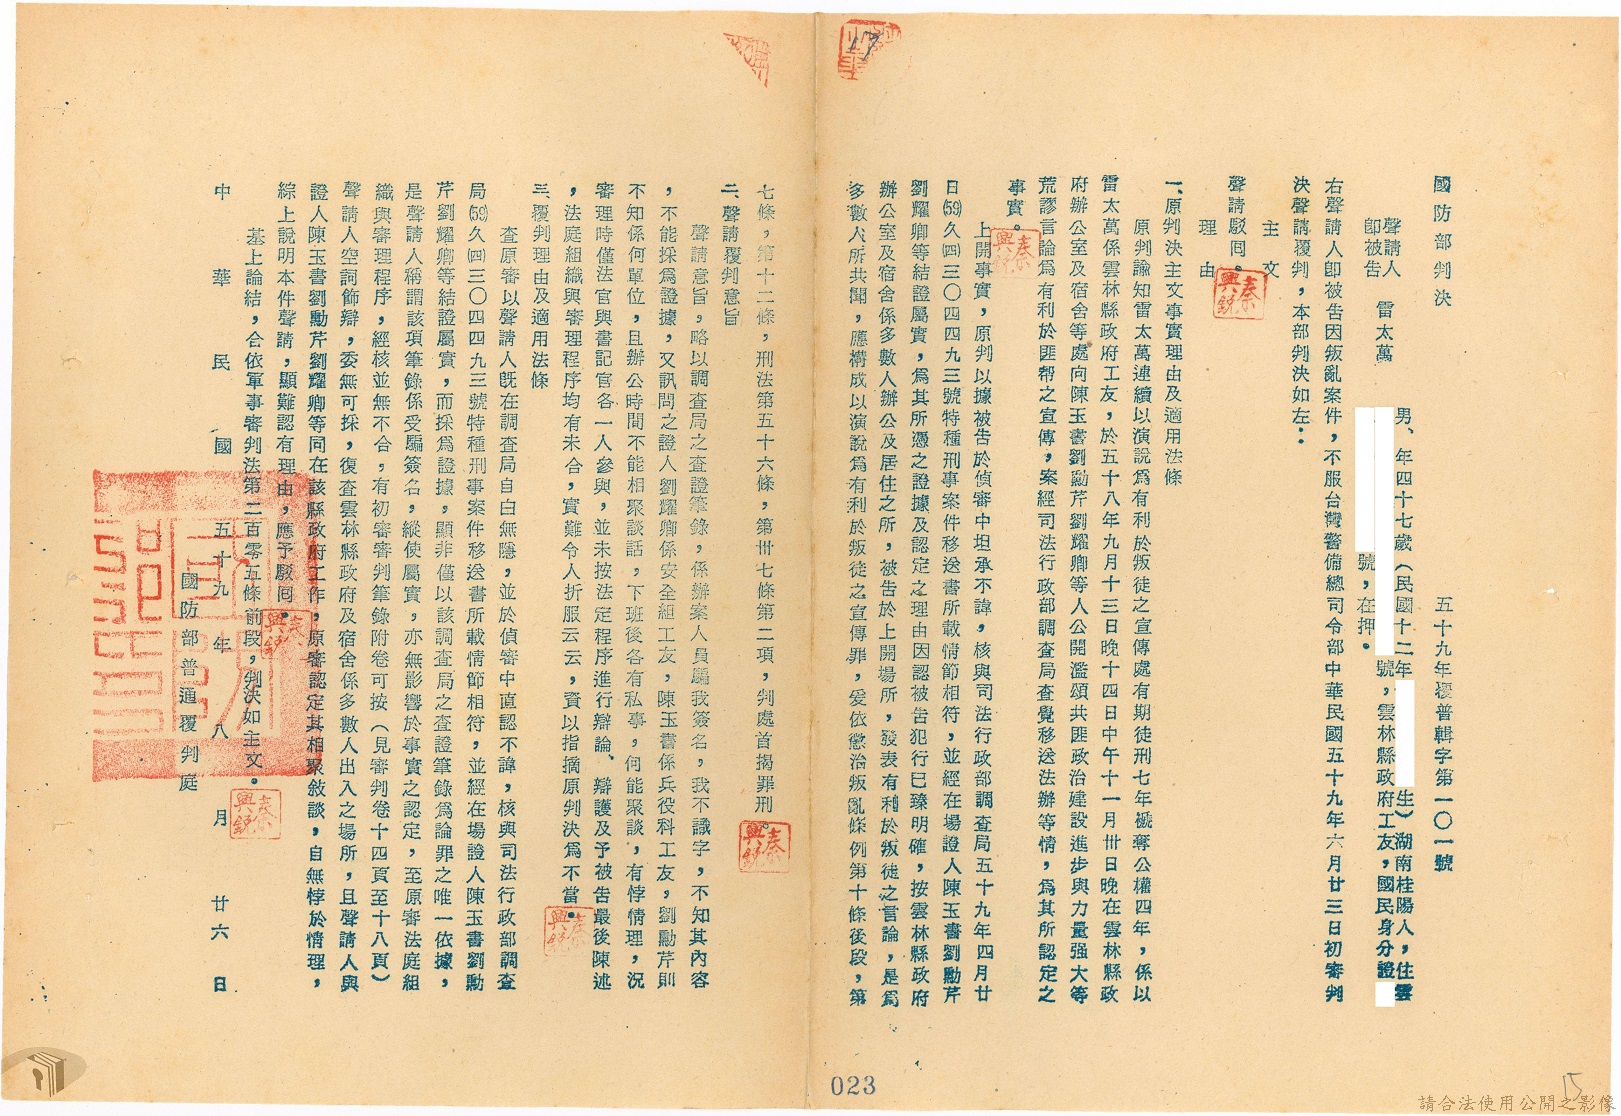 國防部判決
五十九年覆普輯字第一〇一號
聲請人
即被告
雷太萬
男、年四十七歲（民國十二年
生）湖南桂陽人，住雲
號，雲林縣政府工友，國民身分證
號，在押。
右聲請人即被告因叛亂案件，不服台灣警備總司令部中華民國五十九年六月廿三日初審判
決聲請覆判，本部判決如左：
主文
聲請駁囘。
理由
一、原判決主文事實理由及適用法條
原判諭知雷太萬連續以演說爲有利於叛徒之宣傳處有期徒刑七年褫奪公權四年，係以
雷太萬係雲林縣政府工友，於五十八年九月十三日晚十四日中午十一月卅日晚在雲林縣政
府辦公室及宿舍等處向陳玉書劉勳芹劉耀卿等人公開濫頌共匪政治建設進步與力量强大等
荒謬言論爲有利於匪帮之宣傳，案經司法行政部調查局查覺移送法辦等情，爲其所認定之
事實。
上開事實，原判以據被告於偵審中坦承不諱，核與司法行政部調查局五十九年四月廿
日(59)久四三〇四四九三號特種刑事案件移送書所載情節相符，並經在場證人陳玉書劉勳芹
劉耀卿等結證屬實，爲其所憑之證據及認定之理由因認被告犯行已臻明確，按雲林縣政府
辦公室及宿舍係多數人辦公及居住之所，被告於上開場所，發表有利於叛徒之言論，是爲
多數人所共聞，應構成以演說爲有利於叛徒之宣傳罪，爰依懲治叛亂條例第十條後段，第
七條，第十二條，刑法第五十六條，第卅七條第二項，判處首揭罪刑。
二、聲請覆判意旨
聲請意旨，略以調查局之查證筆錄，係辦案人員騙我簽名，我不識字，不知其內容
，不能採爲證據，又訊問之證人劉耀卿係安全組工友，陳玉書係兵役科工友，劉勳芹則
不知係何單位，且辦公時間不能相聚談話，下班後各有私事，何能聚談，有悖情理，況
審理時僅法官與書記官各一人參與，並未按法定程序進行辯論、辯護及予被告最後陳述
，法庭組織與審理程序均有未合，實難令人折服云云，資以指摘原判決爲不當。
三、覆判理由及適用法條
查原審以聲請人旣在調查局自白無隱，並於偵審中直認不諱，核與司法行政部調查
局(59)久四三〇四四九三號特種刑事案件移送書所載情節相符，並經在場證人陳玉書劉勳
芹劉耀卿等結證屬實，而採爲證據，顯非僅以該調查局之查證筆錄爲論罪之唯一依據，
是聲請人稱謂該項筆錄係受騙簽名，縱使屬實，亦無影響於事實之認定，至原審法庭組
織與審理程序，經核並無不合，有初審審判筆錄附卷可按（見審判卷十四頁至十八頁）
聲請人空詞飾辯，委無可採，復查雲林縣政府及宿舍係多數人出入之場所，且聲請人與
證人陳玉書劉勳芹劉耀卿等同在該縣政府工作，原審認定其相聚敘談，自無悖於情理，
綜上說明本件聲請，顯難認有理由，應予駁囘。
基上論結，合依軍事審判法第二百零五條前段，判決如主文。
中華民國五十九年八月廿六日
國防部普通覆判庭
秦興銳
17
023
15
請合法使用公開之影像